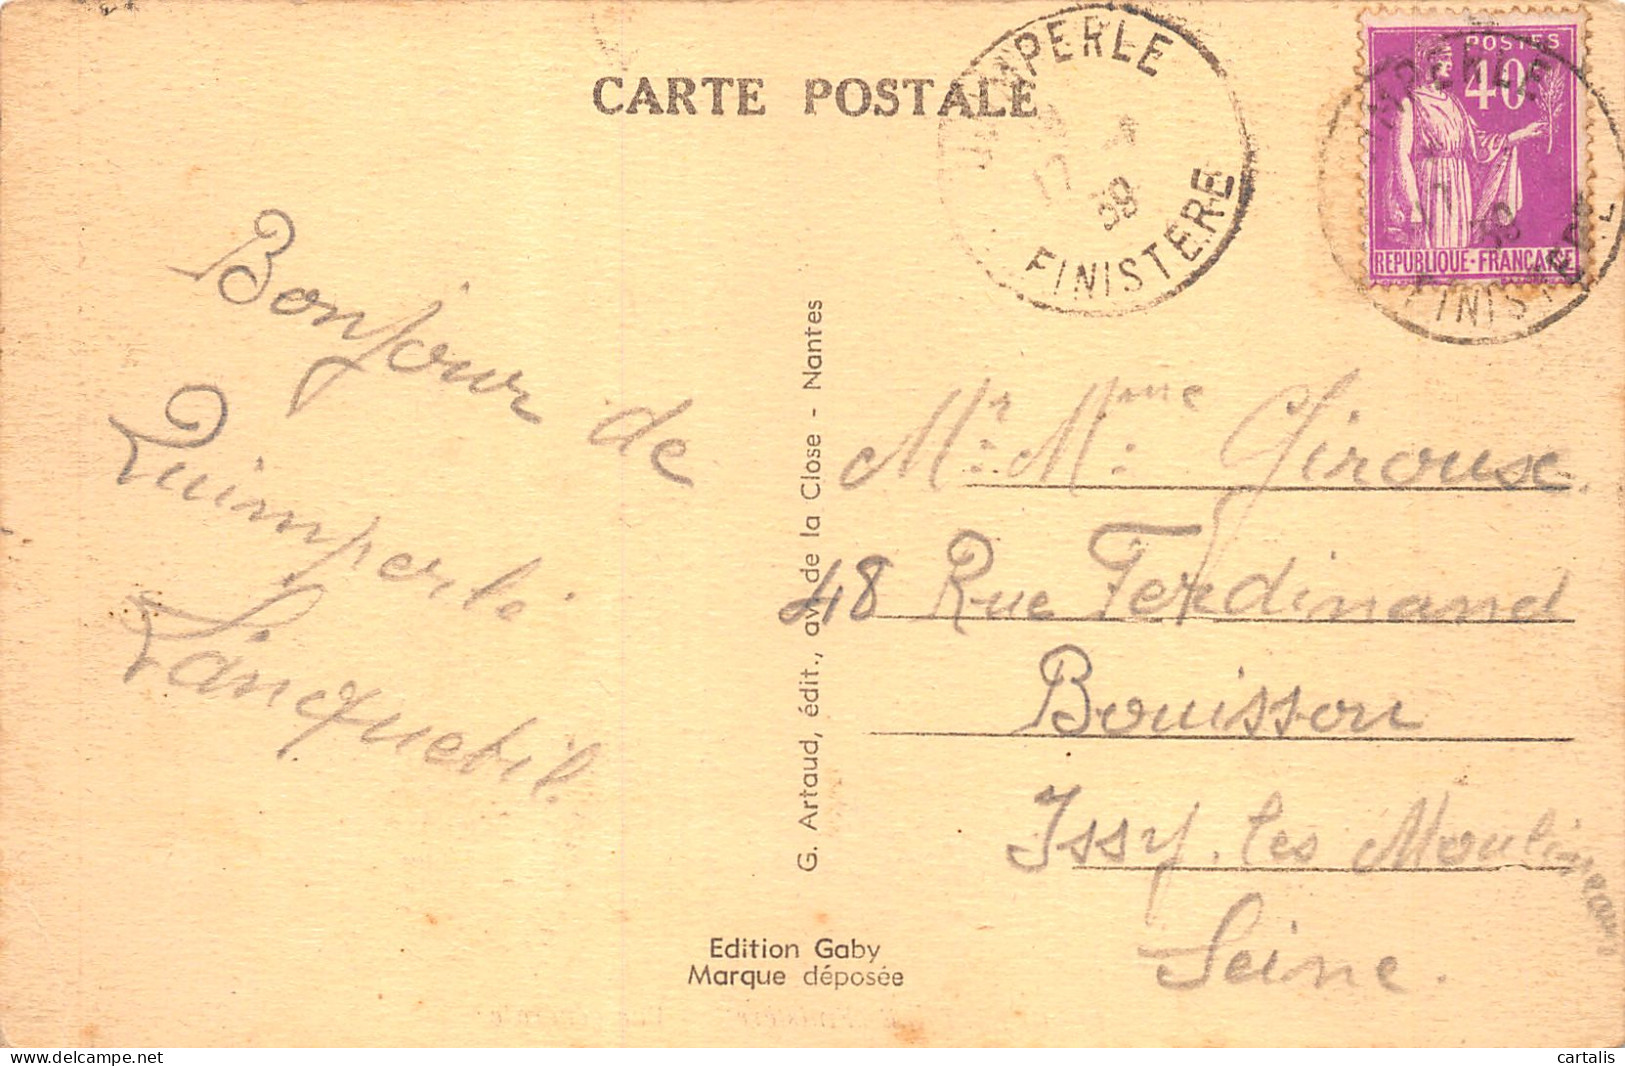 CARTE POSTALE
QUIMPERLE
17 - 39
FINISTERE
POSTES
40
REPUBLIQUE-FRANÇAISE
39
FINISTERE
Bonjour de
Quimperlé
Lanquetil.
G. Artaud, édit., av. de la Close - Nantes
Mr. Mme. Girouse.
48 Rue Ferdinand
Bouisson
Issy. les Moulineaux
Seine.
Edition Gaby
Marque déposée
delcampe.net
cartalis